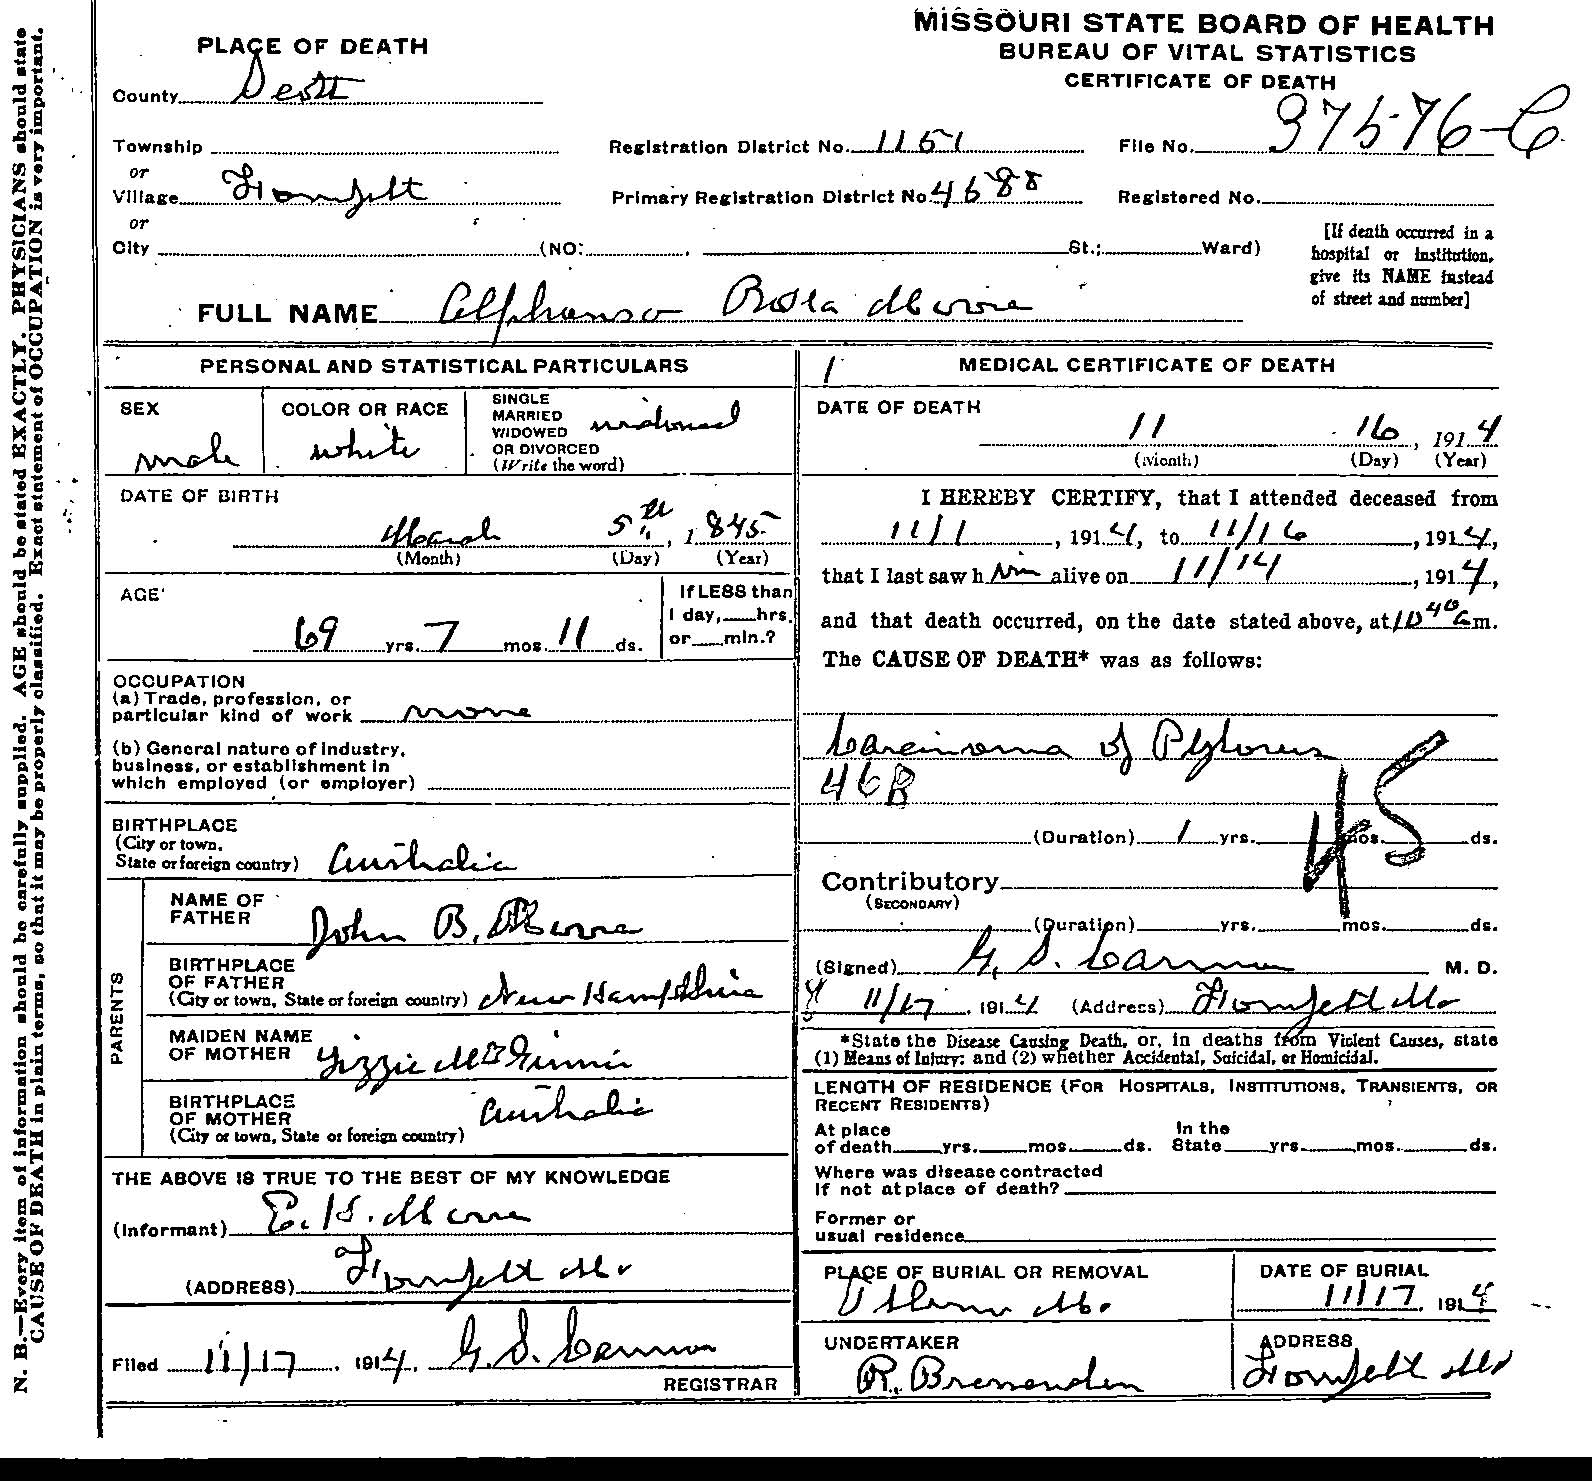 MISSOURI STATE BOARD OF HEALTH
BUREAU OF VITAL STATISTICS
CERTIFICATE OF DEATH
PLACE OF DEATH
County Scott
Township
or
Village Fornfelt
or
City (NO: St.; Ward)
Registration District No. 1151
File No. 37576-C
Primary Registration District No. 4688
Registered No.
[If death occurred in a
hospital or institution,
give its NAME instead
of street and number]
FULL NAME Alphonso Moore
PERSONAL AND STATISTICAL PARTICULARS
SEX
male
COLOR OR RACE
white
SINGLE
MARRIED
WIDOWED
OR DIVORCED
(Write the word)
widowed
DATE OF BIRTH
March 5th, 1845
(Month) (Day) (Year)
AGE
69 yrs. 7 mos. 11 ds.
If LESS than
1 day, hrs.
or min.?
OCCUPATION
(a) Trade, profession, or
particular kind of work none
(b) General nature of industry,
business, or establishment in
which employed (or employer)
BIRTHPLACE
(City or town,
State or foreign country) Australia
PARENTS
NAME OF
FATHER John B. Moore
BIRTHPLACE
OF FATHER
(City or town, State or foreign country) New Hampshire
MAIDEN NAME
OF MOTHER Lizzie McGinnis
BIRTHPLACE
OF MOTHER
(City or town, State or foreign country) Australia
THE ABOVE IS TRUE TO THE BEST OF MY KNOWLEDGE
(Informant) E. H. Moore
(ADDRESS) Fornfelt Mo.
Filed 11/17, 1914, G. S. Cannon
REGISTRAR
1
MEDICAL CERTIFICATE OF DEATH
DATE OF DEATH
11 16, 1914
(Month) (Day) (Year)
I HEREBY CERTIFY, that I attended deceased from
11/1, 1914, to 11/16, 1914,
that I last saw him alive on 11/14, 1914,
and that death occurred, on the date stated above, at 10 40 a m.
The CAUSE OF DEATH* was as follows:
Carcinoma of Pylorus
46B
45
(Duration) 1 yrs. mos. ds.
Contributory
(SECONDARY)
(Duration) yrs. mos. ds.
(Signed) G. S. Cannon M. D.
11/17, 1914 (Address) Fornfelt Mo
*State the Disease Causing Death, or, in deaths from Violent Causes, state
(1) Means of Injury; and (2) whether Accidental, Suicidal, or Homicidal.
LENGTH OF RESIDENCE (FOR HOSPITALS, INSTITUTIONS, TRANSIENTS, OR
RECENT RESIDENTS)
At place
of death yrs. mos. ds.
In the
State yrs. mos. ds.
Where was disease contracted
if not at place of death?
Former or
usual residence
PLACE OF BURIAL OR REMOVAL
Mo.
DATE OF BURIAL
11/17, 1914
UNDERTAKER
ADDRESS
Fornfelt Mo
N. B.—Every item of information should be carefully supplied. AGE should be stated EXACTLY. PHYSICIANS should state
CAUSE OF DEATH in plain terms, so that it may be properly classified. Exact statement of OCCUPATION is very important.